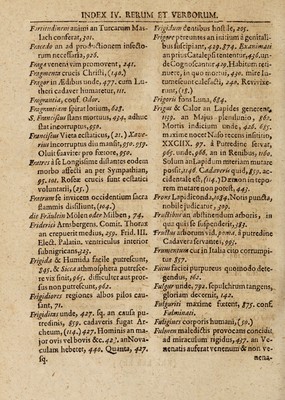 INDEX IV. RERUM ET VERBORUM.
Fortiendinem animi an Turcarum Mas-
lach conferat, 101.
Fracedo an ad productionem insecto-
rum necessaria, 926.
Fraga venenatis promovent, 241.
Fragmenta crucis Christi, (140.)
Fragor in Ædibus unde, 477. cum Lu-
theri cadaver humaretur, 111.
Fragrantia, conf. Odor.
Fragrantiam spirat locium, 608.
S. Franciscus stans mortuus, 494, adhuc
stat incorruptus, 950.
Franciscus Vieta ecstaticus, (21.) Xave-
rius incorruptus diu mansit, 950. 959.
Oluit suaviter pro fœtore, 950.
Fratres ils Longissime distantes eodem
morbo affecti an per Sympathian,
95. 101. Roseæ crucis sunt ecstatici
voluntarii, (25.)
Fratrum se invicem occidentium sacra
flammis dissiliunt, (104.)
die Fräulein Molen oder Milben, 74.
Fridericus Iambergens. Comit. Thorat
an crepuerit medius, 259. Frid. III.
Elect. Palatin. ventriculus interior
subnigricans, 225.
Frigida & Humida fragile putrescunt,
845. & Sicca athmosphæra putresce-
re vix sinit, 965. difficulter aut pror-
sus non putrescunt, 962.
Frigidiores regiones albos pilos cau-
sant, 71.
Frigiditas unde, 427. sq. an causa pu-
tredinis, 859. cadaveris fugat Ar-
cheum, (114.) 427. Hominis an ma-
jor ovis vel bovis &c. 427. an Nova-
culam hebetet, 440. Quanta, 427.
sq.
Frigidum dentibus hostile, 205.
Frigore pereuntes an initium à genitali-
bus suscipiant, 429. 574. Exanimati
an prius Catalepsi tententur, 456. un-
de Cognoscantur 429. Habitum reti-
nuere, in quo mortui, 420. mire lo-
tumescunt calefacti, 240. Reviviscu-
runt, (15.)
Frigoris fons Luna, 684.
Frigus & Calor an Lapides generent,
1159. an Majus plenilunio, 680.
Mortis indicium unde, 426. 635.
matutine nocet Naso recens insitioni,
XXCIIX. 97. à Putredine servat,
965. unde, 966. an in Renibus, 1160.
Solum an Lapidum materiam mutare
possit, 240. Cadaveris quid, 859. ac-
cidentale est, (114.) Dæmon in tepo-
rem mutare non potest, 445.
Frons Lapidiconda, 1084. Notis puncta,
nobile judicatur, 209.
Frustibus an obstinendum arboris, in
qua quis se suspenderit, 181.
Fructus arborum vid. poma. à putredine
Cadavera servantes, 995.
Frumentum cur in Italia cito corrumpi-
tur 857.
Fucus faciei purpureus quomodo dete-
gendus, 862.
Fulgur unde, 792. sepulchrum tangens,
gloriam decernit, 142.
Fulguris maxime fœtent, 875. conf.
Fulminati.
Fuligines corporis humani, (50.)
Fulmen maledictis provocans concidit
ad miraculum rigidus, 437. an Ve-
nenatis auferat venenum & non ve-
nena-